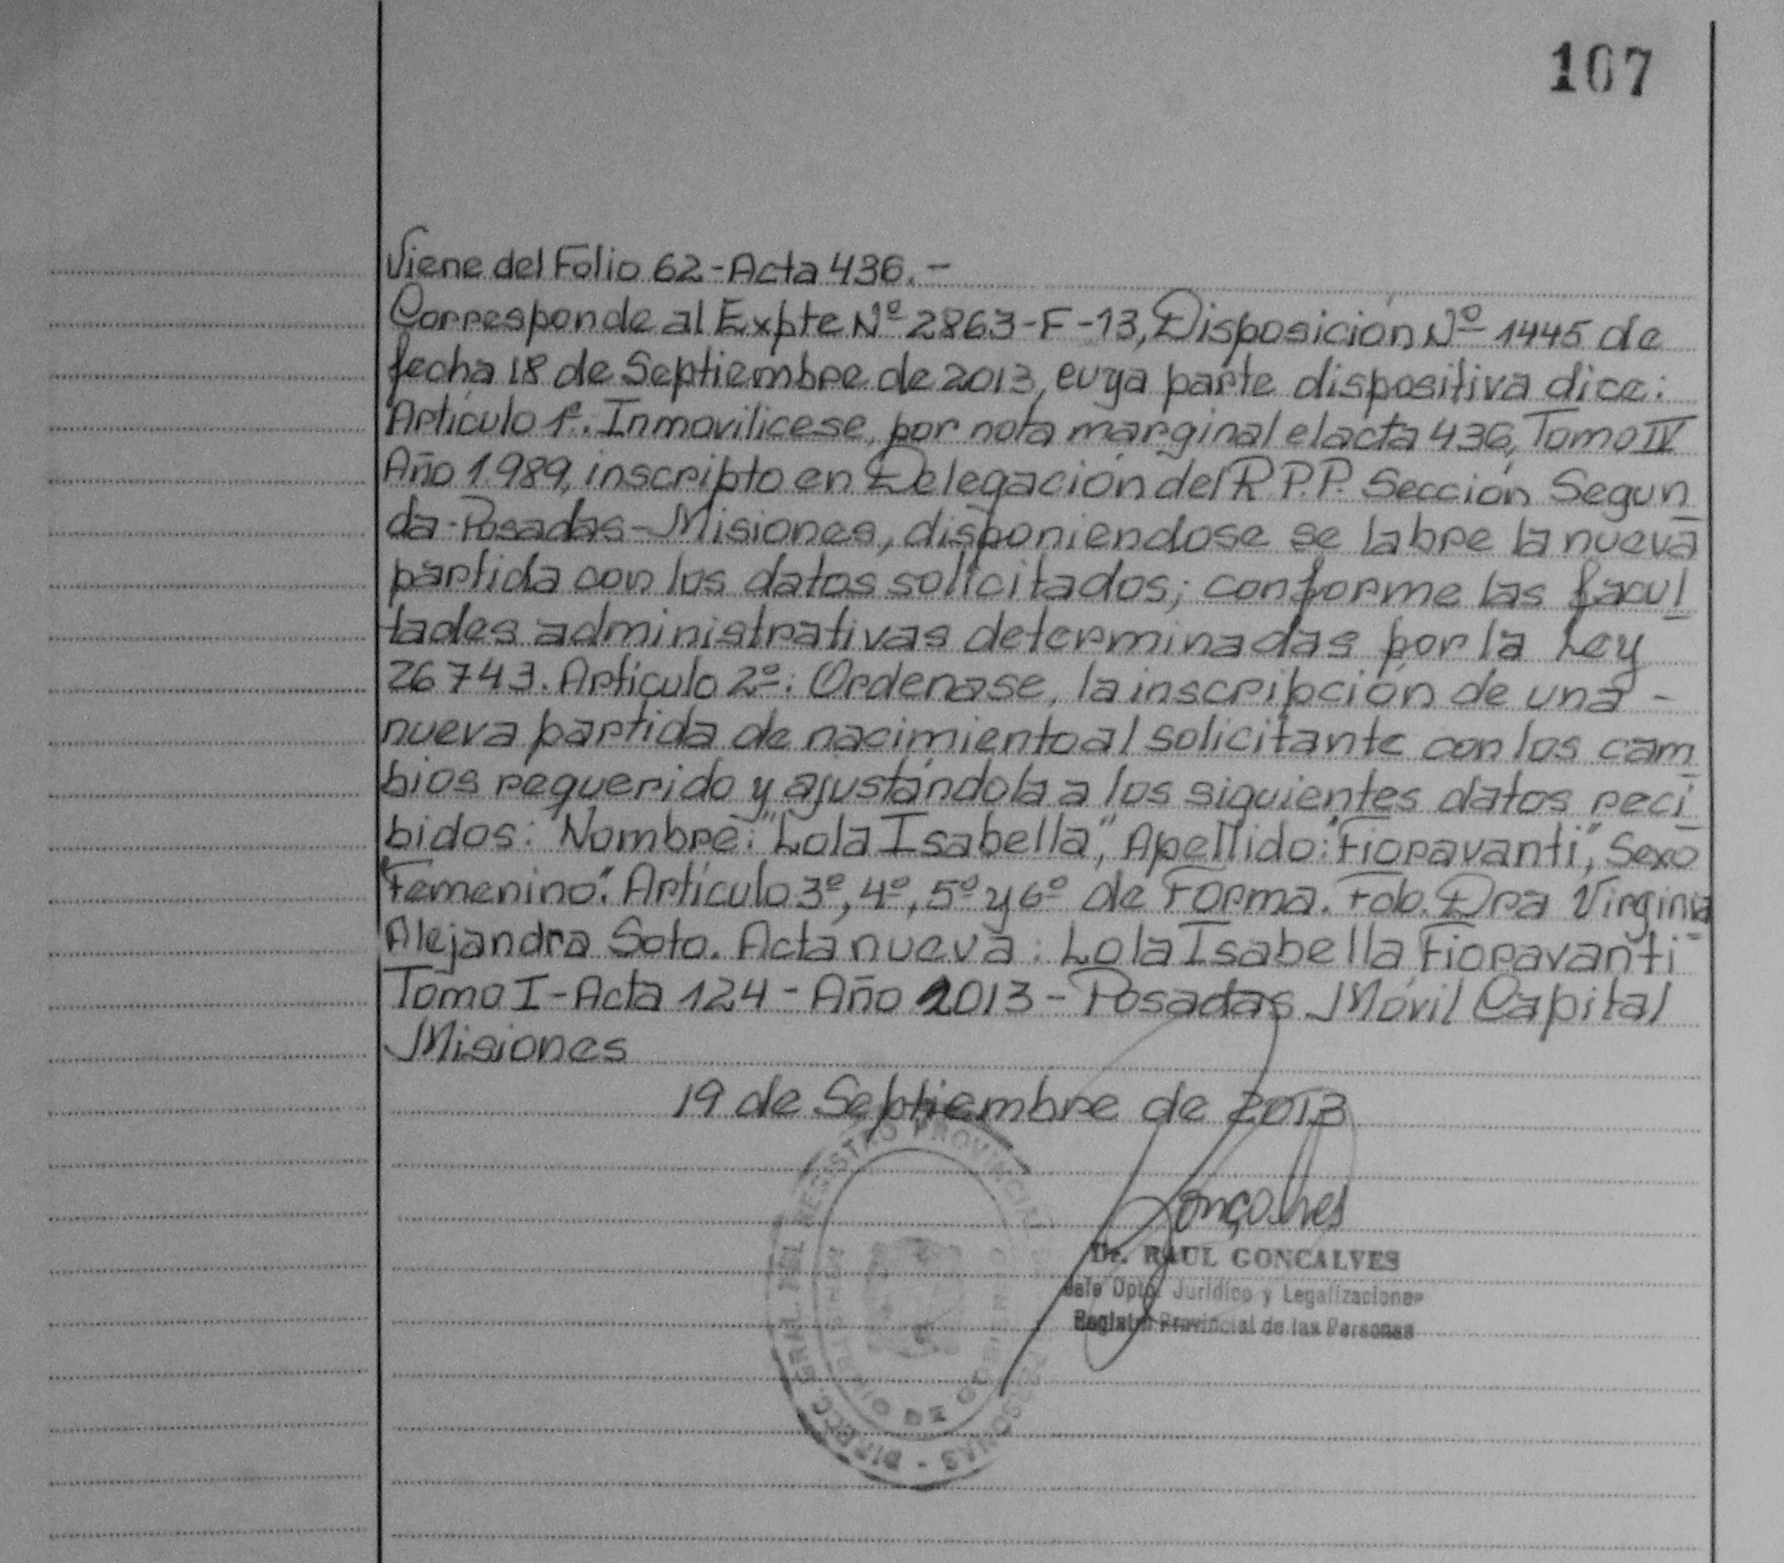 107
Viene del Folio 62-Acta 436.-
Corresponde al Expte Nº 2863-F-13, Disposición Nº 1445 de
fecha 18 de Septiembre de 2013, cuya parte dispositiva dice:
Artículo 1º. Inmovilicese, por nota marginal el acta 436, Tomo IV
Año 1989, inscripto en Delegación del R.P.P. Sección Segun
da-Posadas-Misiones, disponiendose se labre la nueva
partida con los datos solicitados; conforme las facul
tades administrativas determinadas por la Ley
26743. Artículo 2º: Ordenase, la inscripción de una -
nueva partida de nacimiento al solicitante con los cam
bios requerido y ajustándola a los siguientes datos reci
bidos: Nombre: "Lola Isabella", Apellido: "Fioravanti", Sexo
"Femenino". Artículo 3º, 4º, 5º y 6º de Forma. Fdo. Dra Virginia
Alejandra Soto. Acta nueva: Lola Isabella Fioravanti
Tomo I-Acta 124-Año 2013-Posadas Móvil Capital
Misiones
19 de Septiembre de 2013
Gonçalves
Dr. RAUL GONCALVES
Jefe Dpto. Jurídico y Legalizaciones
Registro Provincial de las Personas
DIRECC. GRAL. DEL REGISTRO PROVINCIAL PERSONAS
MINISTERIO DE GOBIERNO